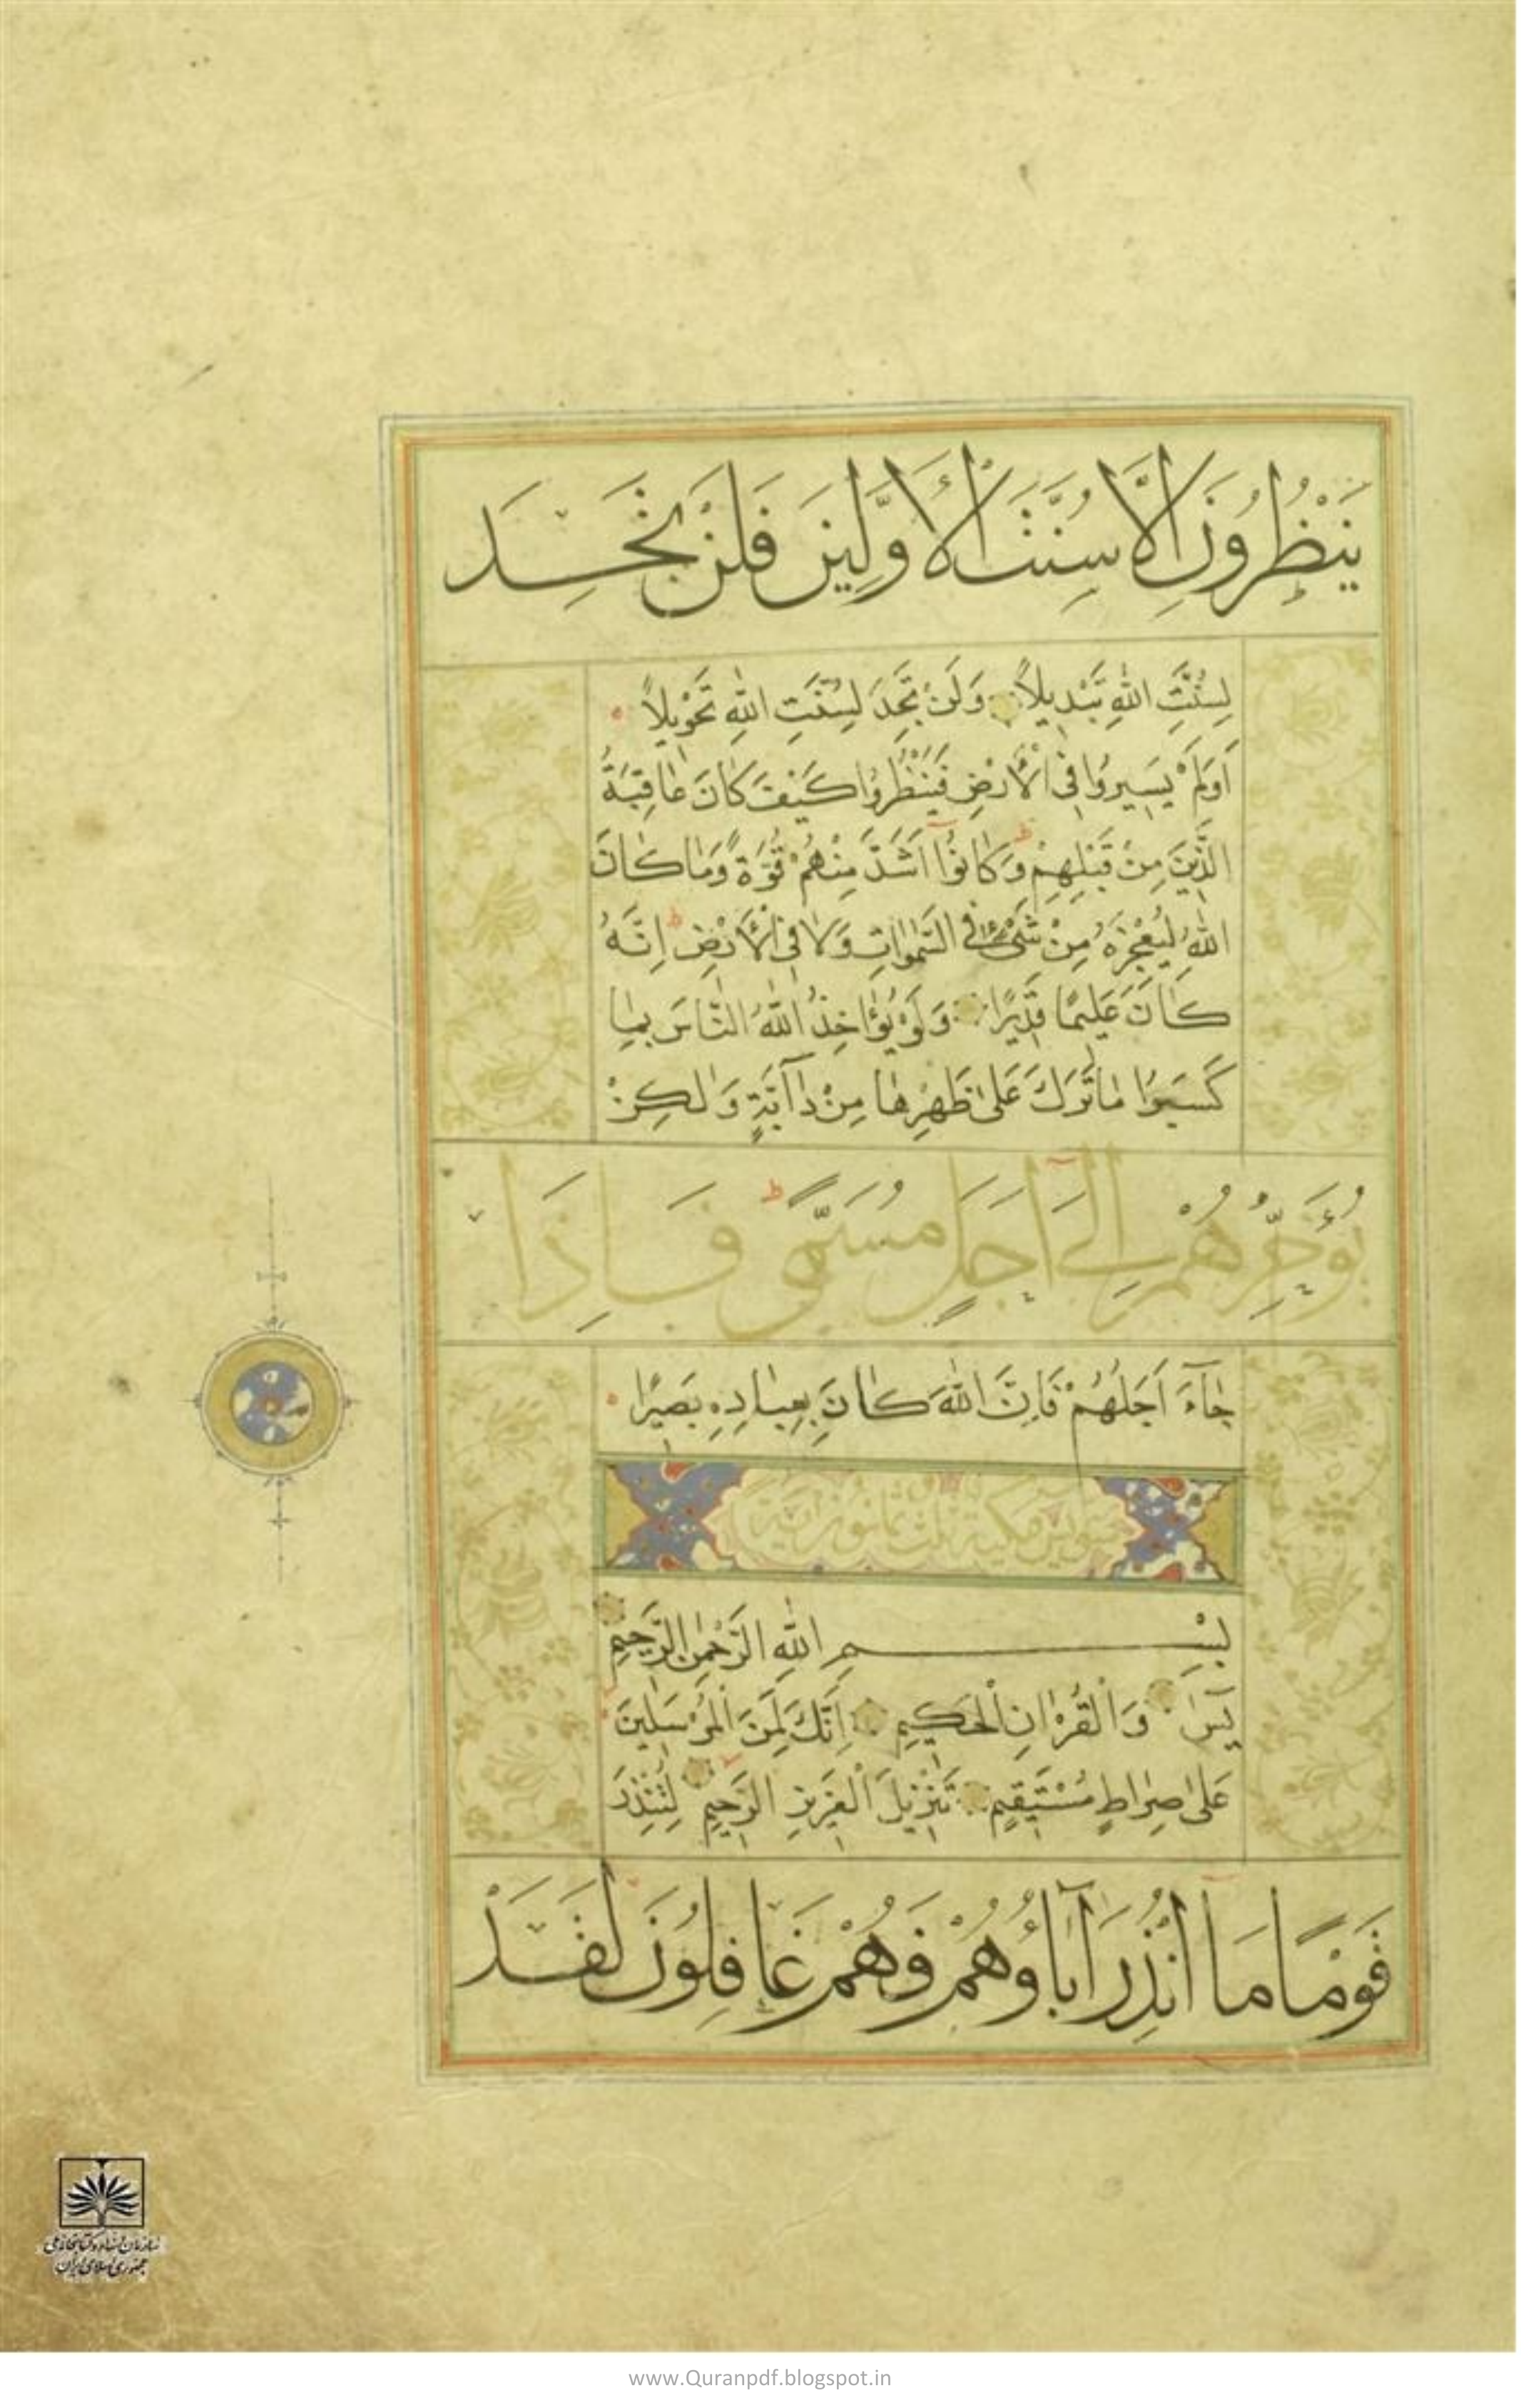 يَنْظُرُونَ اِلَّا سُنَّتَ الْأَوَّلِينَ فَلَنْ تَجِدَ
لِسُنَّتِ اللّٰهِ تَبْدِيلًا وَلَنْ تَجِدَ لِسُنَّتِ اللّٰهِ تَحْوِيلًا
اَوَلَمْ يَسِيرُوا فِي الْأَرْضِ فَيَنْظُرُوا كَيْفَ كَانَ عَاقِبَةُ
الَّذِينَ مِنْ قَبْلِهِمْ وَكَانُوا اَشَدَّ مِنْهُمْ قُوَّةً وَمَا كَانَ
اللّٰهُ لِيُعْجِزَهُ مِنْ شَيْءٍ فِي السَّمٰوَاتِ وَلَا فِي الْأَرْضِ اِنَّهُ
كَانَ عَلِيمًا قَدِيرًا وَلَوْ يُؤَاخِذُ اللّٰهُ النَّاسَ بِمَا
كَسَبُوا مَا تَرَكَ عَلٰى ظَهْرِهَا مِنْ دَآبَّةٍ وَلٰكِنْ
يُؤَخِّرُهُمْ اِلٰٓى اَجَلٍ مُسَمًّى فَاِذَا
جَآءَ اَجَلُهُمْ فَاِنَّ اللّٰهَ كَانَ بِعِبَادِهِ بَصِيرًا
مكية ثلث ثمانون اية
بِسْمِ اللّٰهِ الرَّحْمٰنِ الرَّحِيمِ
يٰسٓ وَالْقُرْاٰنِ الْحَكِيمِ اِنَّكَ لَمِنَ الْمُرْسَلِينَ
عَلٰى صِرَاطٍ مُسْتَقِيمٍ تَنْزِيلَ الْعَزِيزِ الرَّحِيمِ لِتُنْذِرَ
قَوْمًا مَا اُنْذِرَ اٰبَاؤُهُمْ فَهُمْ غَافِلُونَ لَقَدْ
سازمان اسناد و کتابخانه ملی
جمهوری اسلامی ایران
www.Quranpdf.blogspot.in